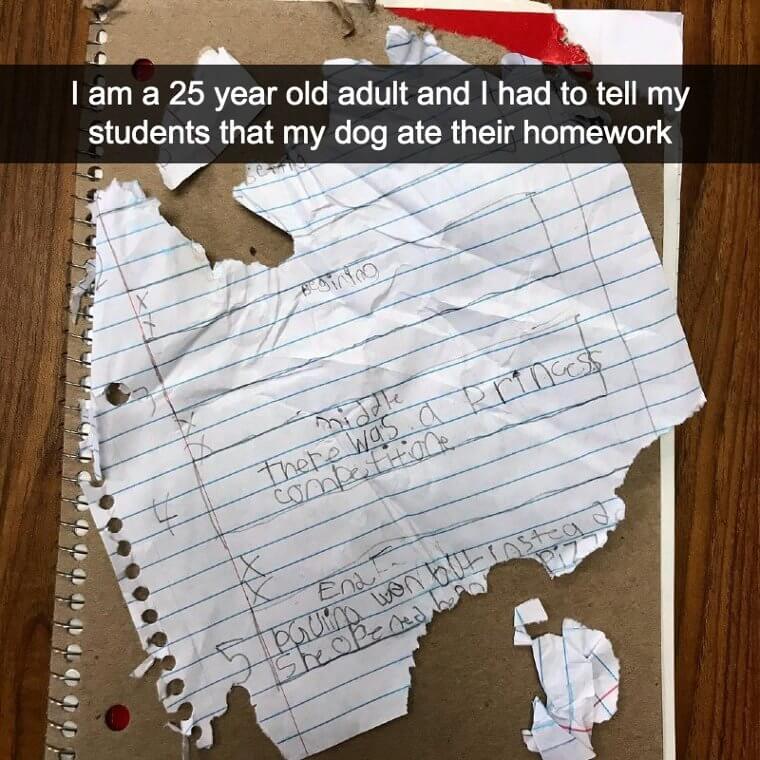 I am a 25 year old adult and I had to tell my
students that my dog ate their homework
middle
there was a princess
competitione
4
End
won but instead
5 she opened